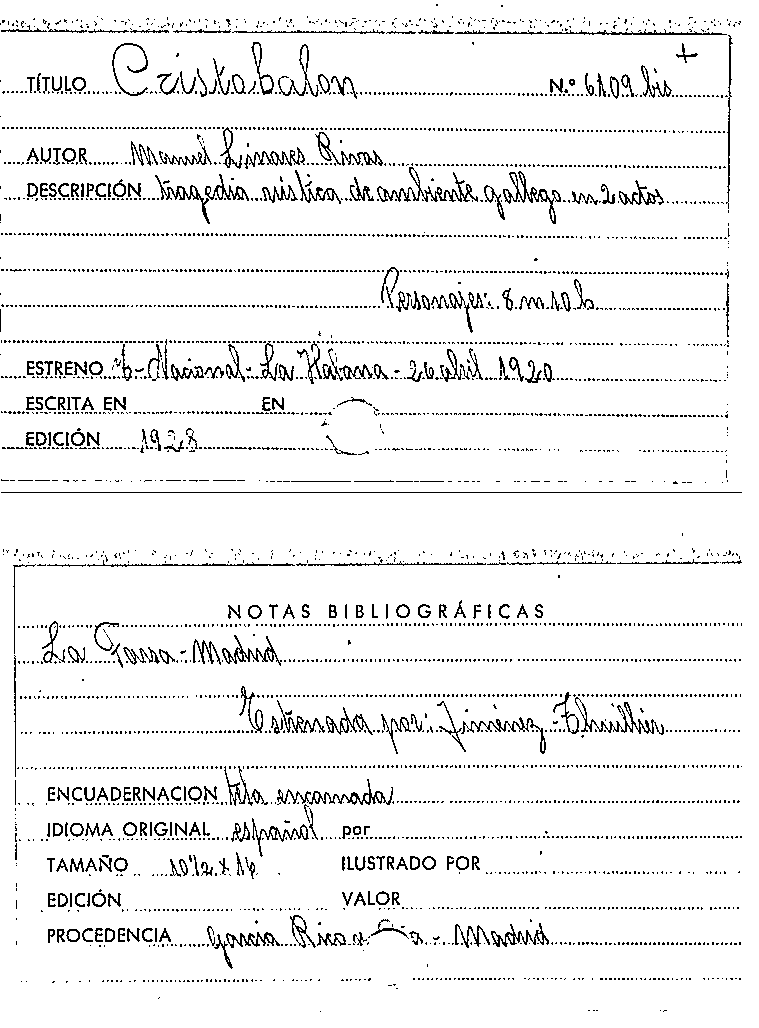 +
TÍTULO Cristabalon N.º 6109 bis
AUTOR Manuel Linares Rivas
DESCRIPCIÓN tragedia rústica de ambiente gallego en 2 actos
Personajes: 8 m 10 h
ESTRENO T- Nacional - La Habana - 26 abril 1920
ESCRITA EN EN
EDICIÓN 1928
NOTAS BIBLIOGRÁFICAS
La Farsa - Madrid
Estrenada por: Jiménez - Thuillier
ENCUADERNACION tela encarnada
IDIOMA ORIGINAL español por
TAMAÑO 10½ x 16 ILUSTRADO POR
EDICIÓN VALOR
PROCEDENCIA García Rico y Cía - Madrid